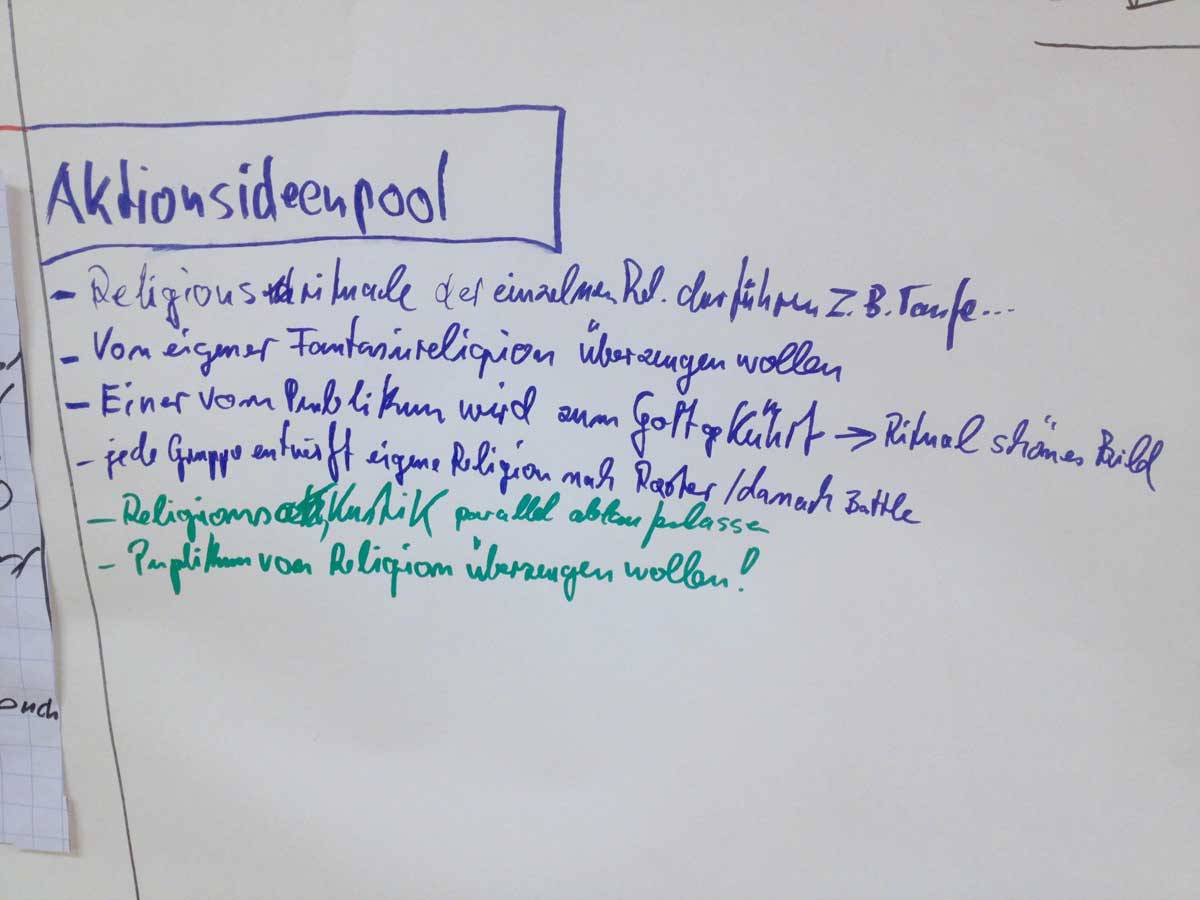 Aktionsideenpool
- Religionsrituale der einzelnen Rel. durführen z.B. Taufe...
- Von eigener Fantasiereligion überzeugen wollen
- Einer vom Publikum wird zum Gott gekührt → Ritual schönes Bild
- jede Gruppe entwirft eigene Religion nach Raster / danach Battle
- Religions Kritik parallel ablaufen lassen
- Puplikum von Religion überzeugen wollen!